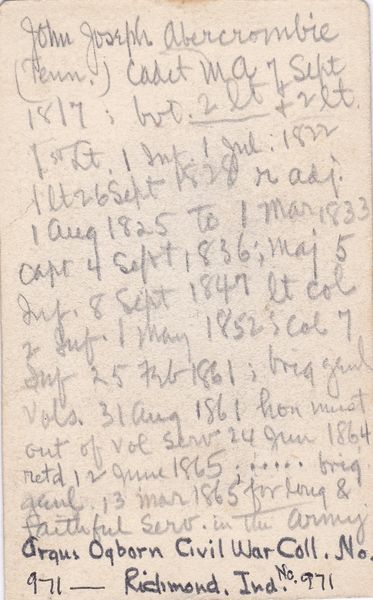 John Joseph Abercrombie
(Tenn.) Cadet MA 7 Sept
1817; bvt. 2 lt & 2 lt.
1st Lt. 1 Inf. 1 Jul: 1822
1 lt 26 Sept 1828 r adj.
1 Aug 1825 To 1 Mar 1833
Capt 4 Sept 1836; Maj 5
Inf. 8 Sept 1847 lt col
2 Inf. 1 May 1852; Col 7
Inf 25 Feb 1861; brig genl
Vols. 31 Aug 1861 hon must
out of vol serv 24 Jun 1864
retd 12 June 1865; ..... brig
genl. 13 Mar 1865 for long &
faithful Serv. in the Army
Argus Ogborn Civil War Coll. No.
971 — Richmond. Ind. No. 971